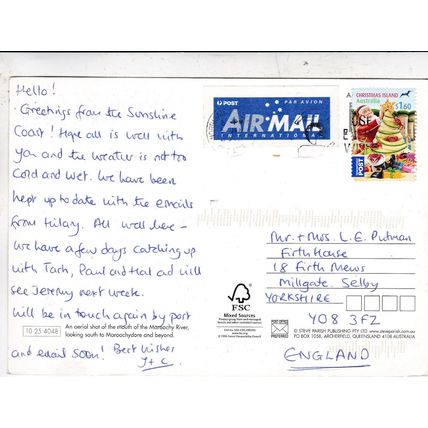 Hello!
Greetings from the Sunshine
Coast! Hope all is well with
you and the weather is not too
cold and wet. We have been
kept up to date with the emails
from Hilary. All well here -
we have a few days catching up
with Tash, Paul and Hal and will
see Jeremy next week.
Will be in touch again by post
and email soon! Best wishes
J + C.
10 25 4048
An aerial shot of the mouth of the Maroochy River,
looking south to Maroochydore and beyond.
POST
PAR AVION
AIR MAIL
INTERNATIONAL
CHRISTMAS ISLAND
Australia
$1.60
POST
Mr. + Mrs. L. E. Putman
Firth House
18 Firth Mews
Millgate. Selby
YORKSHIRE
YO8 3FZ
ENGLAND
FSC
Mixed Sources
POST OFFICE
PREFERRED
© STEVE PARISH PUBLISHING PTY LTD www.steveparish.com.au
PO BOX 1058, ARCHERFIELD, QUEENSLAND 4108 AUSTRALIA